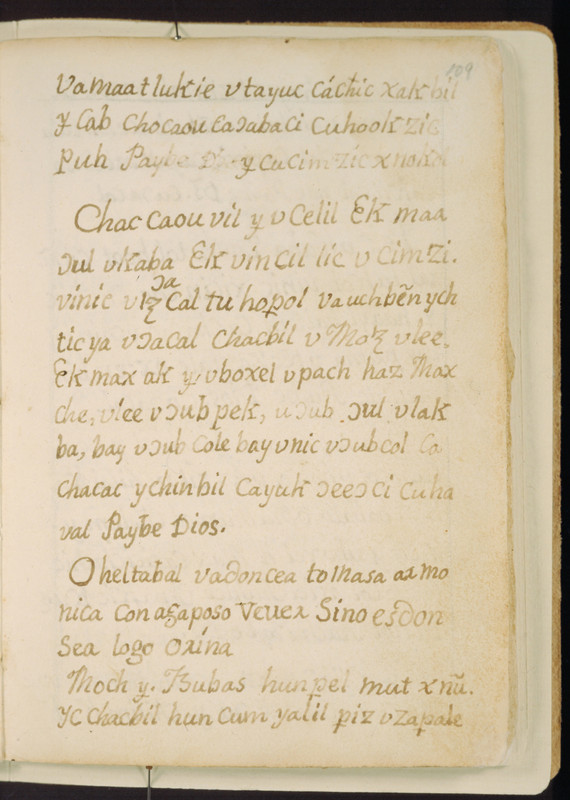 109
Va maat lukie v tayuc cáchic xak bil
y cab chocaou caɔabaci cuhookzic
puh Paybe Dio y cu cimzic x nokol
Chac caou vil y v Celil Ek maa
ɔul v kaba Ek vincil lic v cimzi.
vinic v itz ɔa cal tu hopol va uchbeñ ych
tic ya v ɔacal chacbil v Motz vlee.
Ek max ak y v boxel v pach haz Max
che, vlee v ɔub pek, u ɔub ɔul v lak
ba, bay v ɔub cole bay v nic v ɔub col Ca
chacac y chinbil Cayuk ɔeeɔ ci cu ha
val Paybe Dios.
Oheltabal va doncea tomasa ar mo
nica con agaposo Vever Sino es don
Sea logo orína
Moch y. Tzubas hunpel mut x nũ.
yc chacbil hun cum yalil piz v zapale